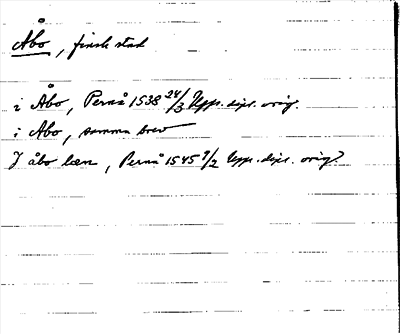 Åbo, finsk stad
i Åbo, Pernå 1538 24/3 Upps. dipl. orig.
i Åbo, samma brev
I åbo læn, Pernå 1545 9/2 Upps. dipl. orig.